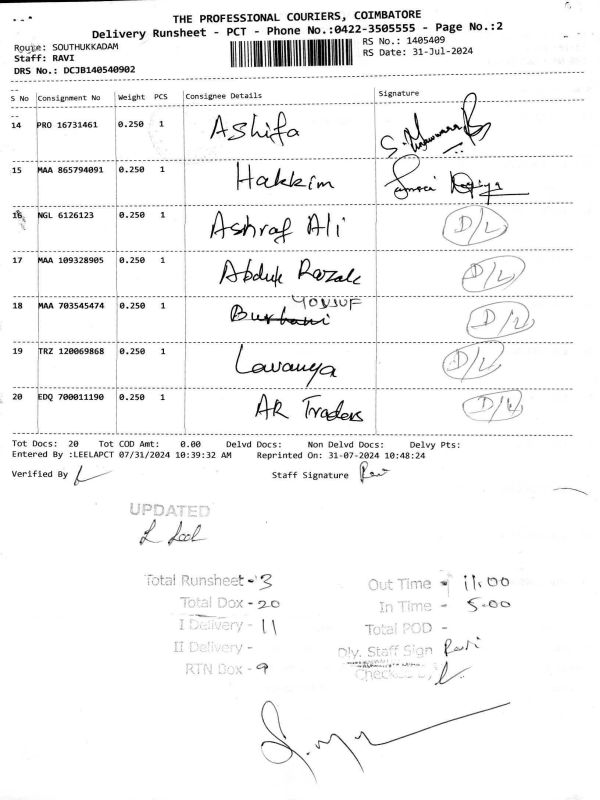 THE PROFESSIONAL COURIERS, COIMBATORE
Delivery Runsheet - PCT - Phone No.:0422-3505555 - Page No.:2
Route: SOUTHUKKADAM
RS No.: 1405409
Staff: RAVI
RS Date: 31-Jul-2024
DRS No.: DCJB140540902
S No Consignment No Weight PCS Consignee Details Signature
14 PRO 16731461 0.250 1 Ashifa
15 MAA 865794091 0.250 1 Hakkim
16 NGL 6126123 0.250 1 Ashraf Ali D/L
17 MAA 109328905 0.250 1 Abduk Razak D/L
YOUSUF
18 MAA 703545474 0.250 1 Burhani D/L
19 TRZ 120069868 0.250 1 Lavanya D/L
20 EDQ 700011190 0.250 1 AR Traders D/L
Tot Docs: 20 Tot COD Amt: 0.00 Delvd Docs: Non Delvd Docs: Delvy Pts:
Entered By :LEELAPCT 07/31/2024 10:39:32 AM Reprinted On: 31-07-2024 10:48:24
Verified By Staff Signature Ravi
UPDATED
Total Runsheet - 3 Out Time - 11.00
Total Dox - 20 In Time - 5.00
I Delivery - 11 Total POD -
II Delivery - Dly. Staff Sign Ravi
RTN Dox - 9 Checked By